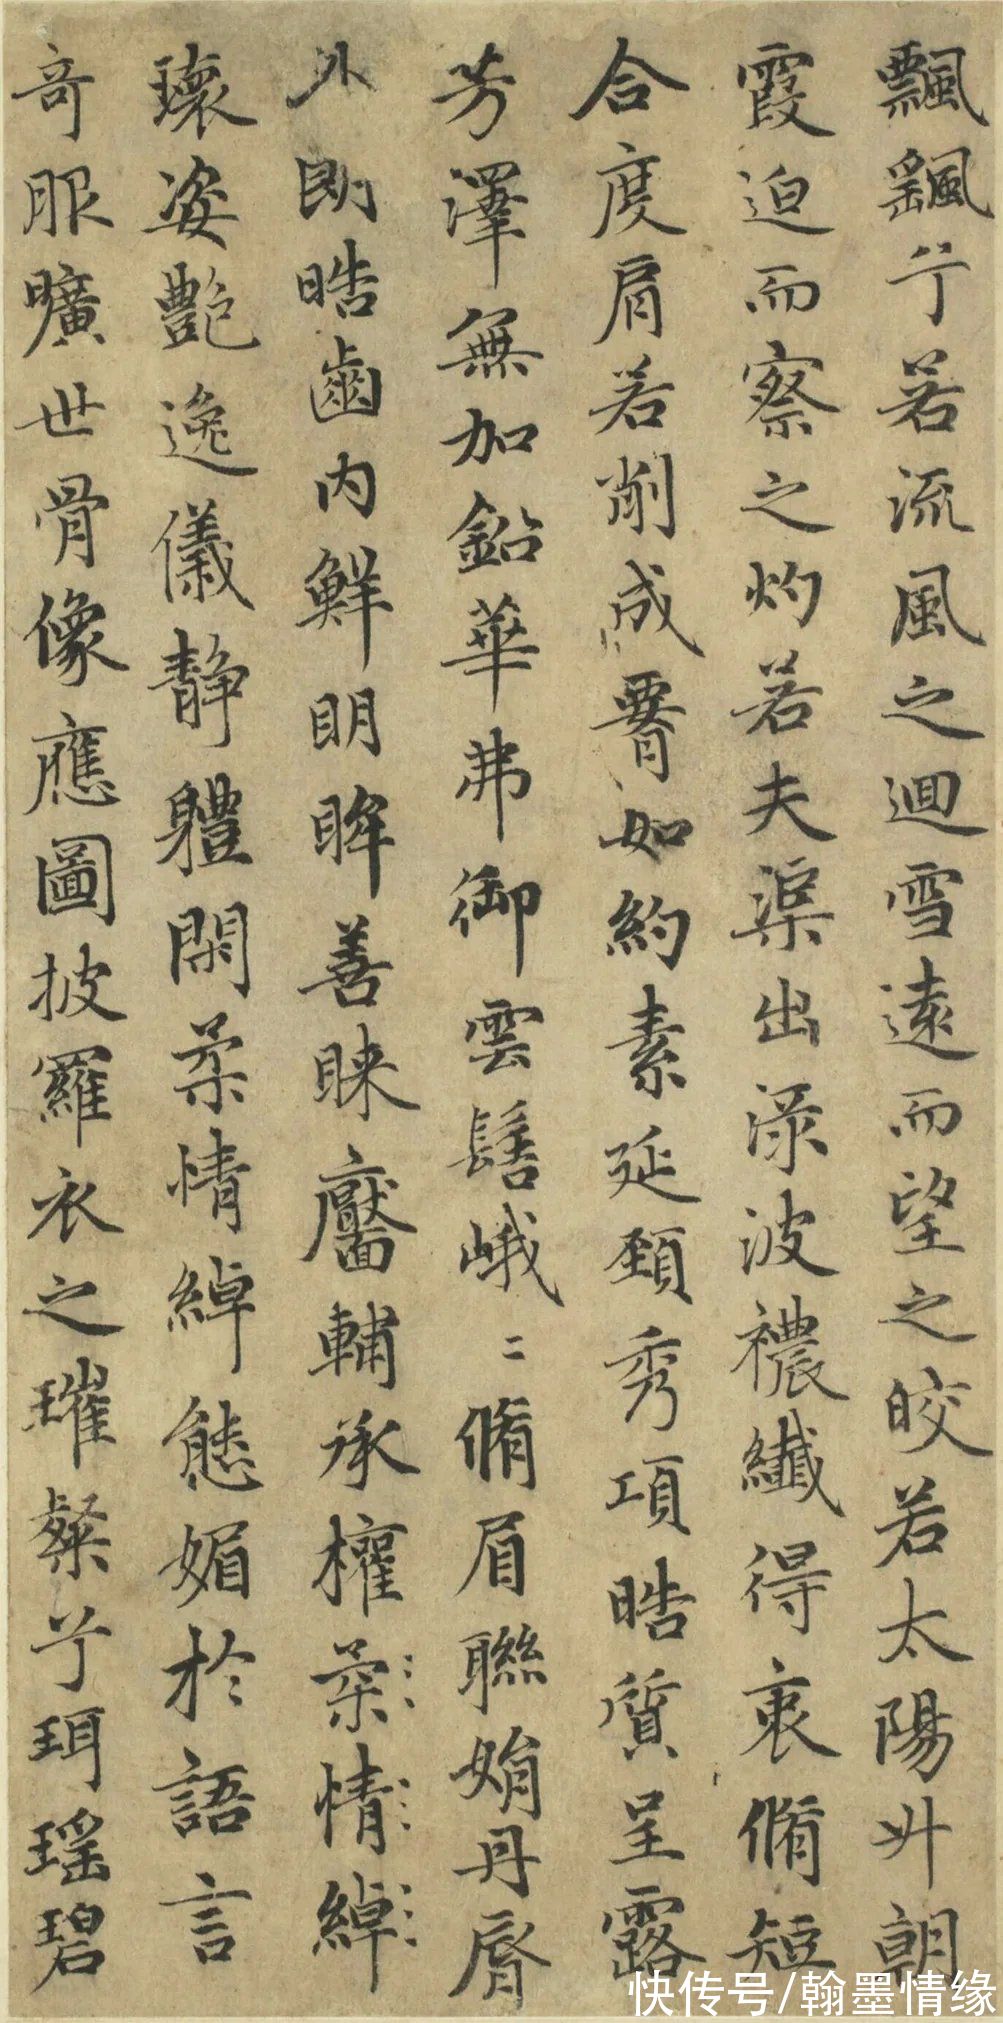 飄飖兮若流風之迴雪遠而望之皎若太陽升朝
霞迫而察之灼若夫渠出渌波襛纖得衷脩短
合度肩若削成署如約素延頸秀項晧質呈露
芳澤無加鉛華弗御雲髻峨〻脩眉聯娟丹脣
外朗晧齒内鮮明眸善睞靨輔承權柔情綽
瓌姿艶逸儀静軆閑柔情綽態媚於語言
奇服曠世骨像應圖披羅衣之璀粲兮珥瑶碧
快传号/翰墨情缘